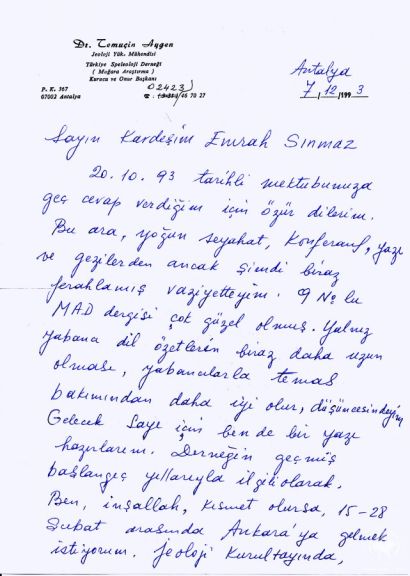 Dr. Temuçin Aygen
Jeoloji Yük. Mühendisi
Türkiye Speleoloji Derneği
( Mağara Araştırma )
Kurucu ve Onur Başkanı
P. K. 567
07002 Antalya
02423
46 70 27
Antalya
7 / 12 / 1993
Sayın Kardeşim Emrah Sınmaz
20.10.93 tarihli mektubunuza
geç cevap verdiğim için özür dilerim.
Bu ara, yoğun seyahat, konferans, yazı
ve gezilerden ancak şimdi biraz
ferahlamış vaziyetteyim. 9 No lu
MAD dergisi çok güzel olmuş. Yalnız
yabancı dil özetlerin biraz daha uzun
olması, yabancılarla temas
bakımından daha iyi olur, düşüncesindeyim
Gelecek Sayı için ben de bir yazı
hazırlarım. Derneğin geçmiş
başlangıç yıllarıyla ilgili olarak.
Ben, inşallah, kısmet olursa, 15-28
Şubat arasında Ankara'ya gelmek
istiyorum. Jeoloji Kurultayında,